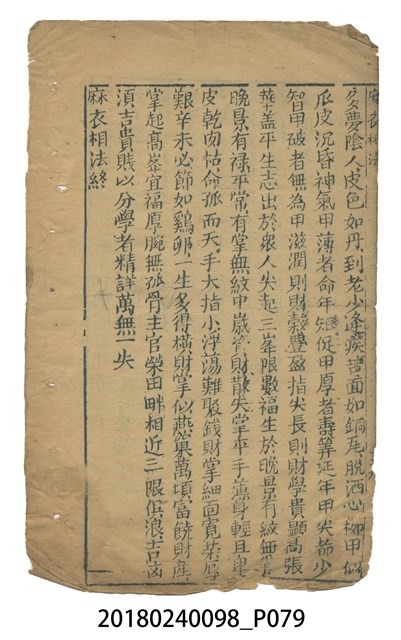 多夢陰人皮色如丹到老少逢疾苦面如銅瓦脫洒心神甲似
瓜皮沉昏神氣甲薄者命年短促甲厚者壽筭延年甲尖節少
智甲破者無為甲滋潤則財穀豐盈指尖長則財學貴顯高張
華盖平生志出於衆人尖起三峯限數福生於晚景有紋無
晚景有禄平常有掌無紋中歲管財散失掌平手薄身輕且
皮乾肉枯命孤而夭手大指小浮蕩難聚錢財掌細面寬
艱辛未必節如鷄卵一生多得橫財掌似燕巢萬頃富饒財產
掌起高峯宜福厚腕無孤骨主官榮田畔相近三限俱浪吉凶
須吉貴賤以分學者精詳萬無一失
麻衣相法終
20180240098_P079